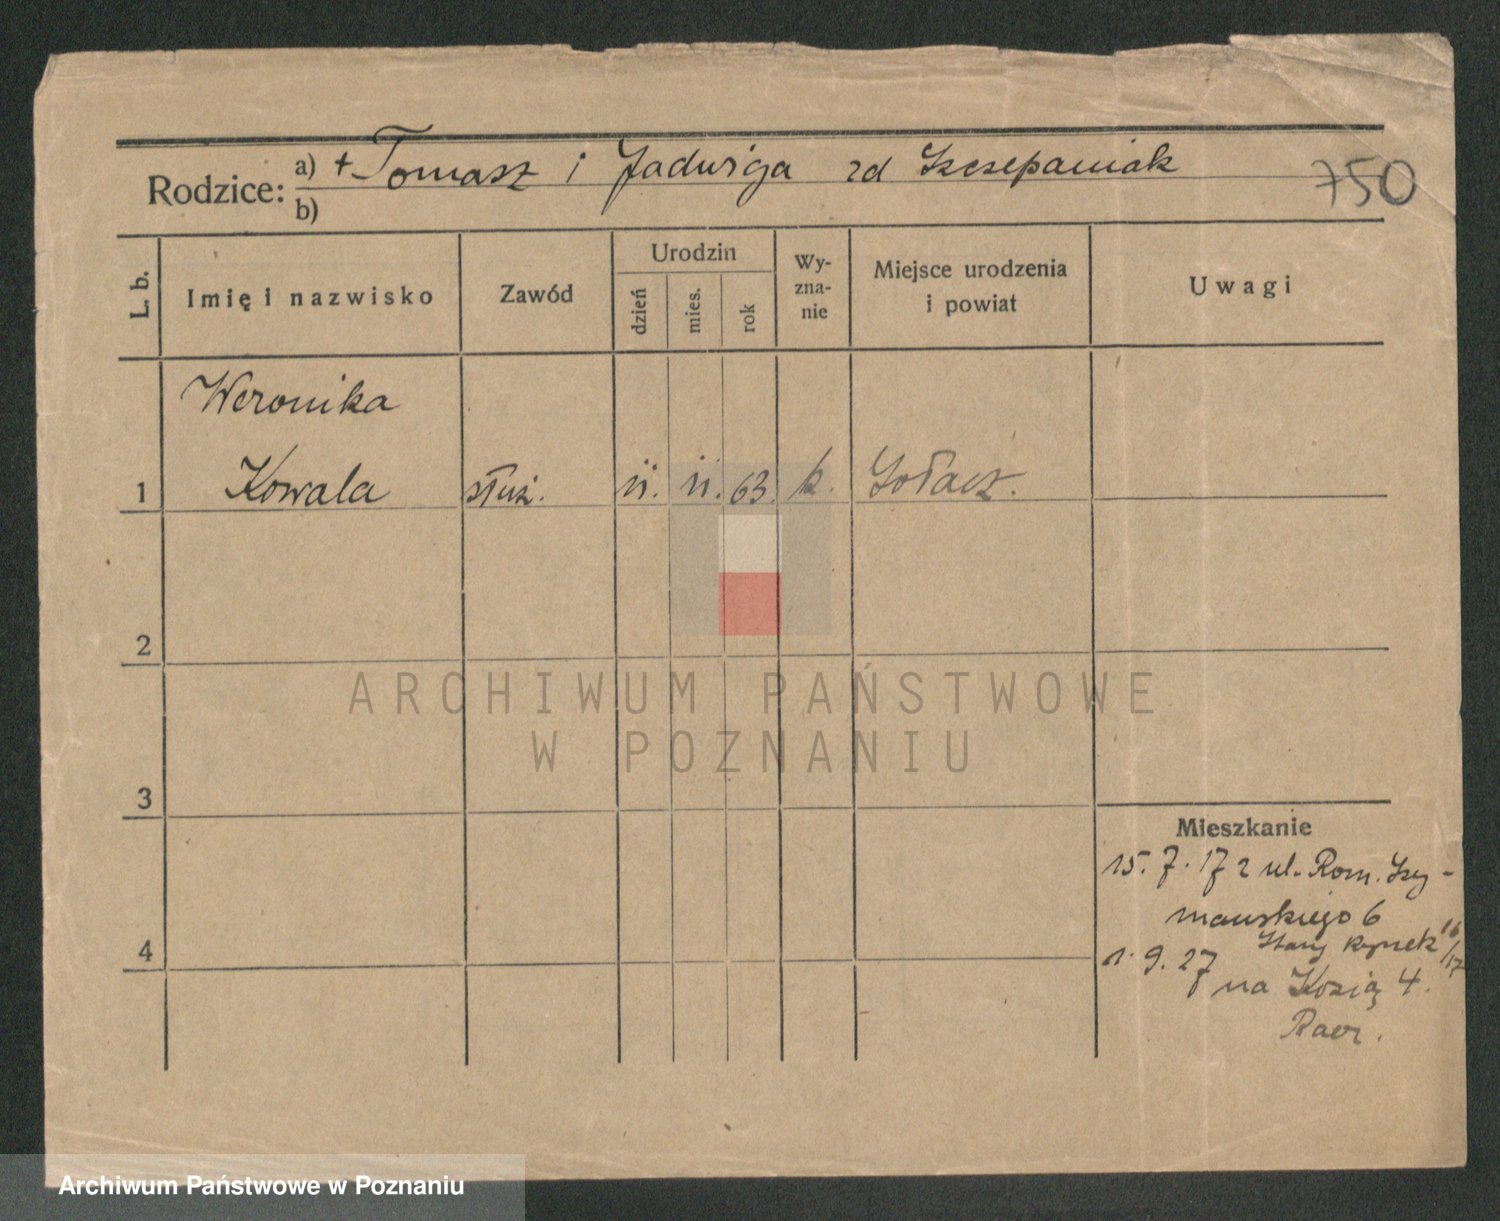 Rodzice: a) + Tomasz i Jadwiga zd Szczepaniak
b)
750
L. b.
Imię i nazwisko
Zawód
Urodzin
dzień
mies.
rok
Wy-
zna-
nie
Miejsce urodzenia
i powiat
Uwagi
Weronika
1 Kowala służ. 11. 11. 63. k. Sołacz.
2
3
4
Mieszkanie
15. 7. 17 z ul. Rom. Szy-
mańskiego 6
Stary Rynek 16/17
1. 9. 27 na Kozią 4.
ARCHIWUM PAŃSTWOWE
W POZNANIU
Archiwum Państwowe w Poznaniu